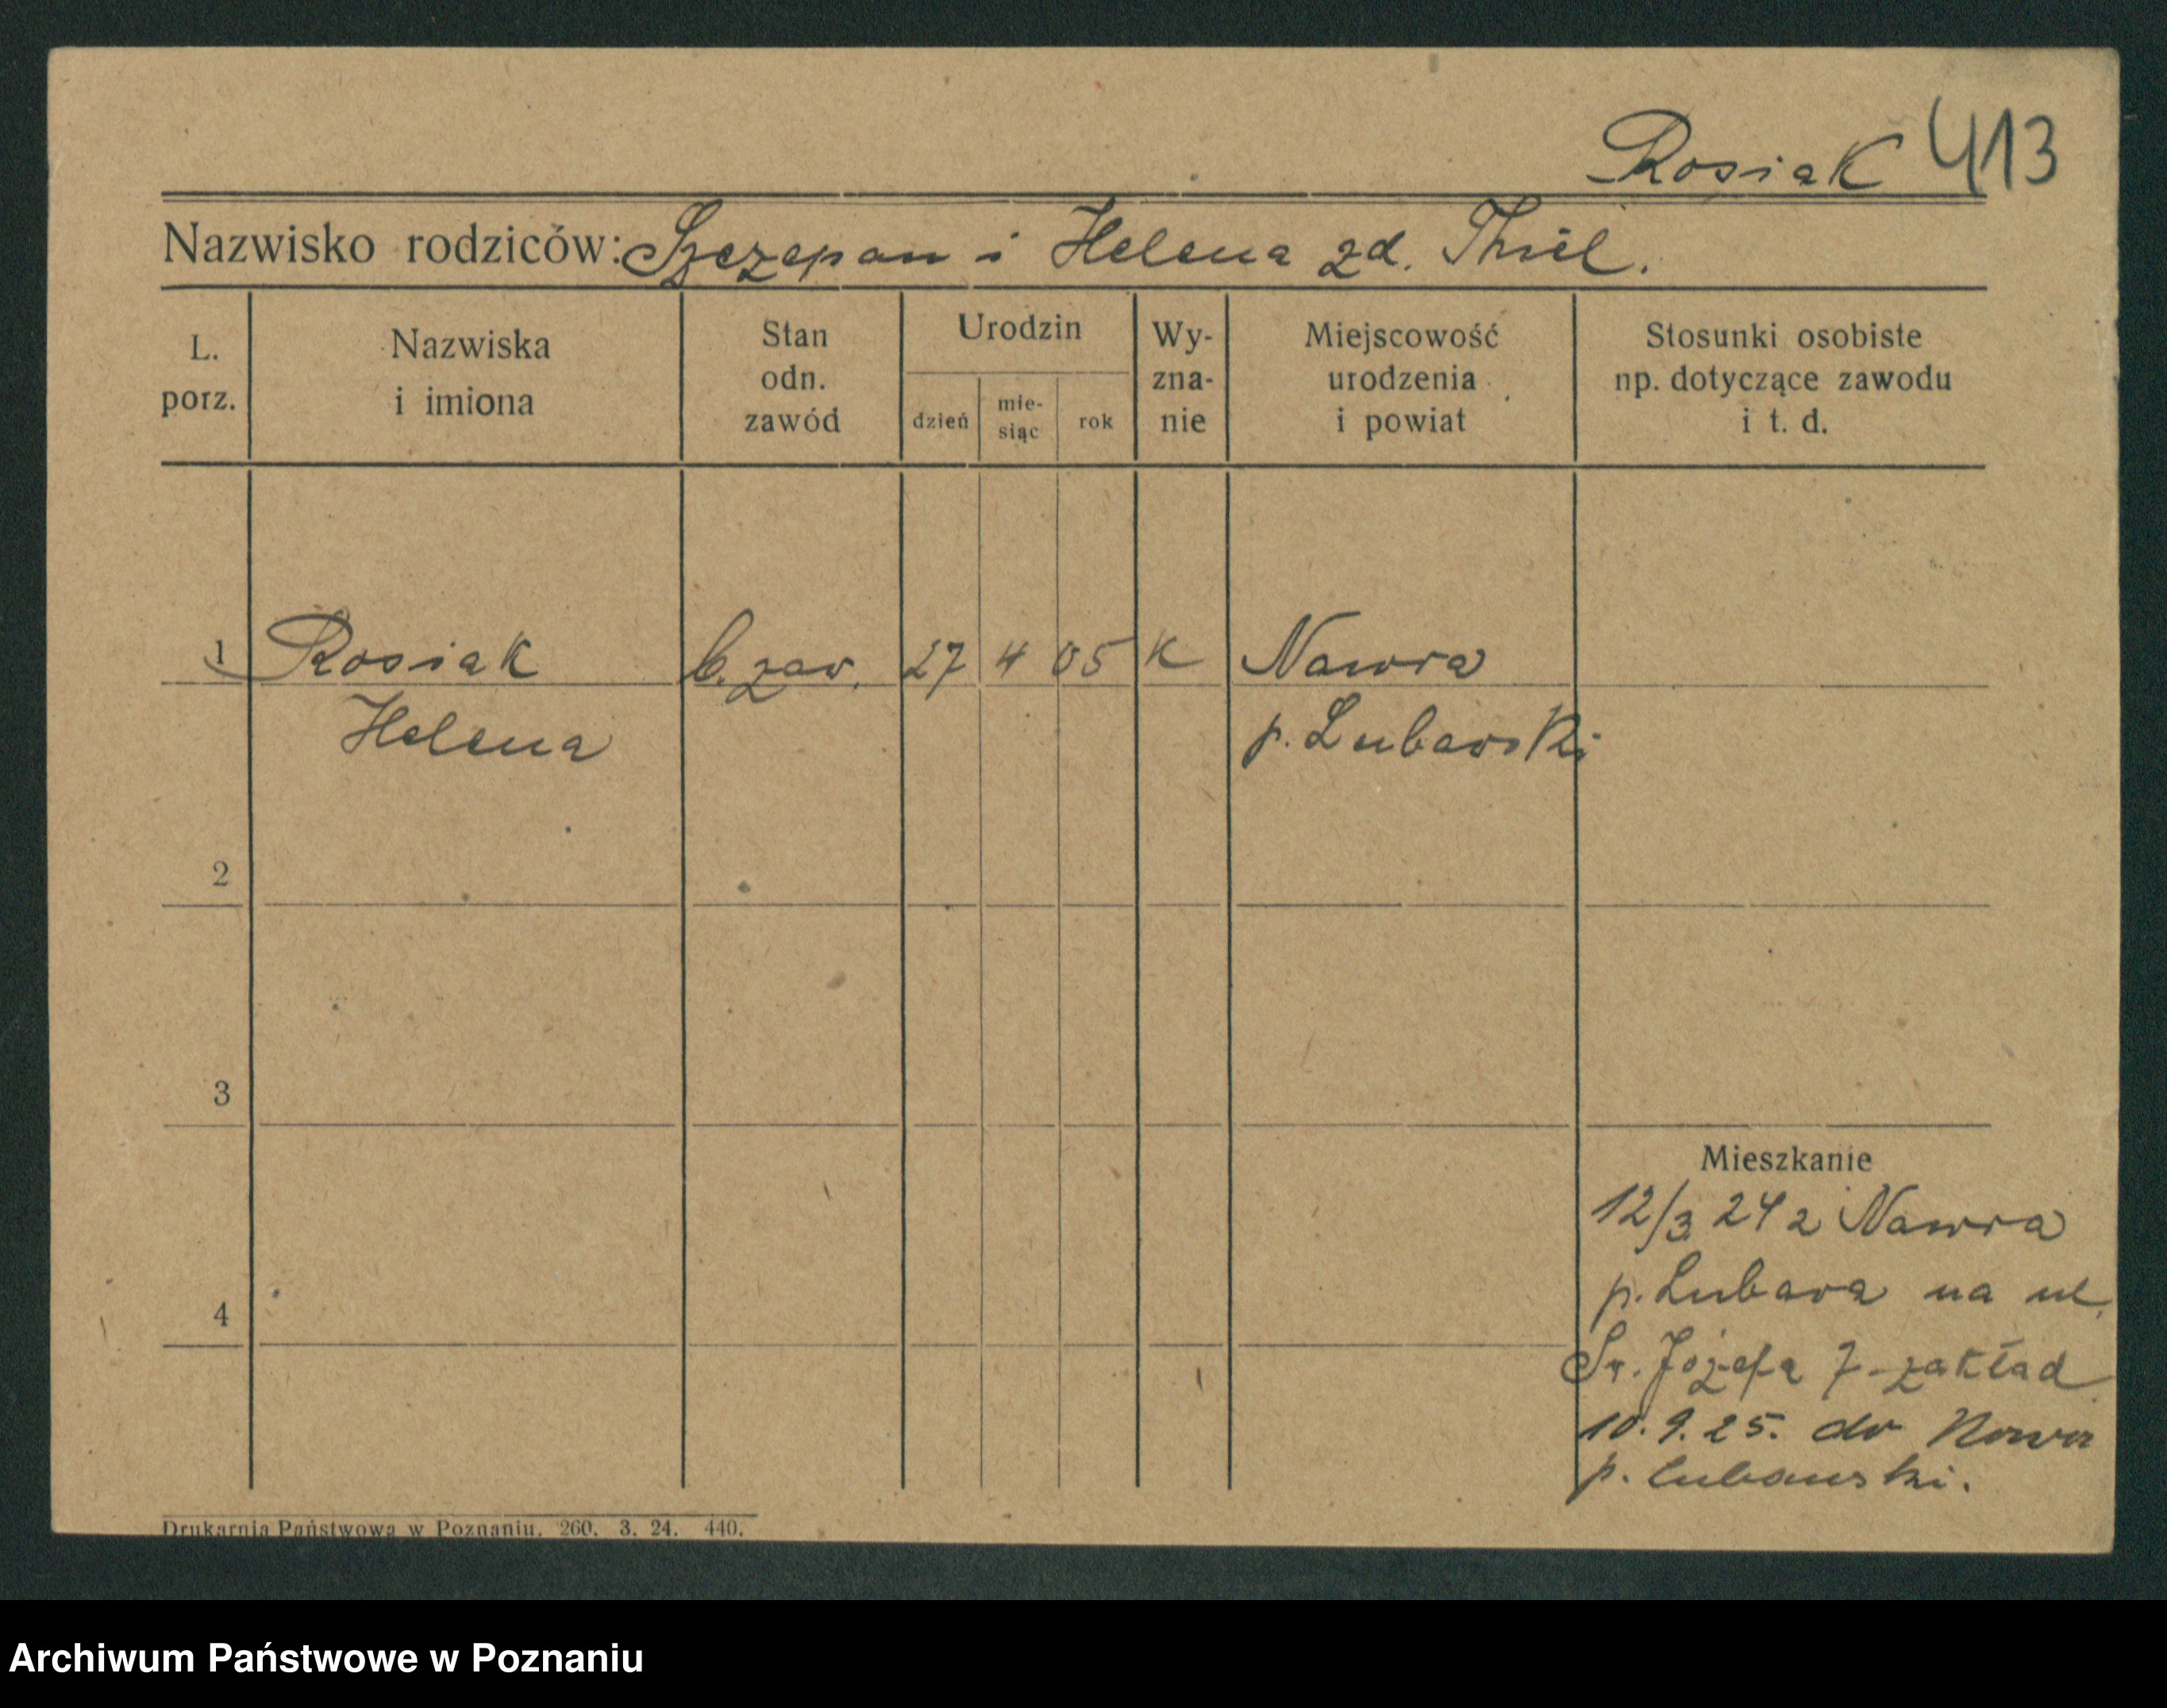 Rosiak 413
Nazwisko rodziców: Szczepan i Helena zd. Thiel.
L. porz.
Nazwiska i imiona
Stan odn. zawód
Urodzin
dzień
mie-siąc
rok
Wy-zna-nie
Miejscowość urodzenia i powiat
Stosunki osobiste np. dotyczące zawodu i t. d.
1 Rosiak b. zaw. 27 4 05 K Nawra
Helena p. Lubawski
2
3
Mieszkanie
12/3 24 z Nawra
p. Lubawa na ul.
4
Św. Józefa 7 - zakład
10.9.25. do Nawra
p. lubawski.
Drukarnia Państwowa w Poznaniu. 260. 3. 24. 440.
Archiwum Państwowe w Poznaniu